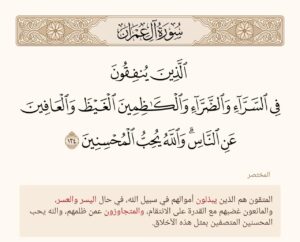 سُورَةُ آلِ عِمْرَانَ
الَّذِينَ يُنفِقُونَ
فِي السَّرَّاءِ وَالضَّرَّاءِ وَالْكَاظِمِينَ الْغَيْظَ وَالْعَافِينَ
عَنِ النَّاسِ ۗ وَاللَّهُ يُحِبُّ الْمُحْسِنِينَ ١٣٤
المختصر
المتقون هم الذين يبذلون أموالهم في سبيل الله، في حال اليسر والعسر،
والمانعون غضبهم مع القدرة على الانتقام، والمتجاوزون عمن ظلمهم، والله يحب
المحسنين المتصفين بمثل هذه الأخلاق.